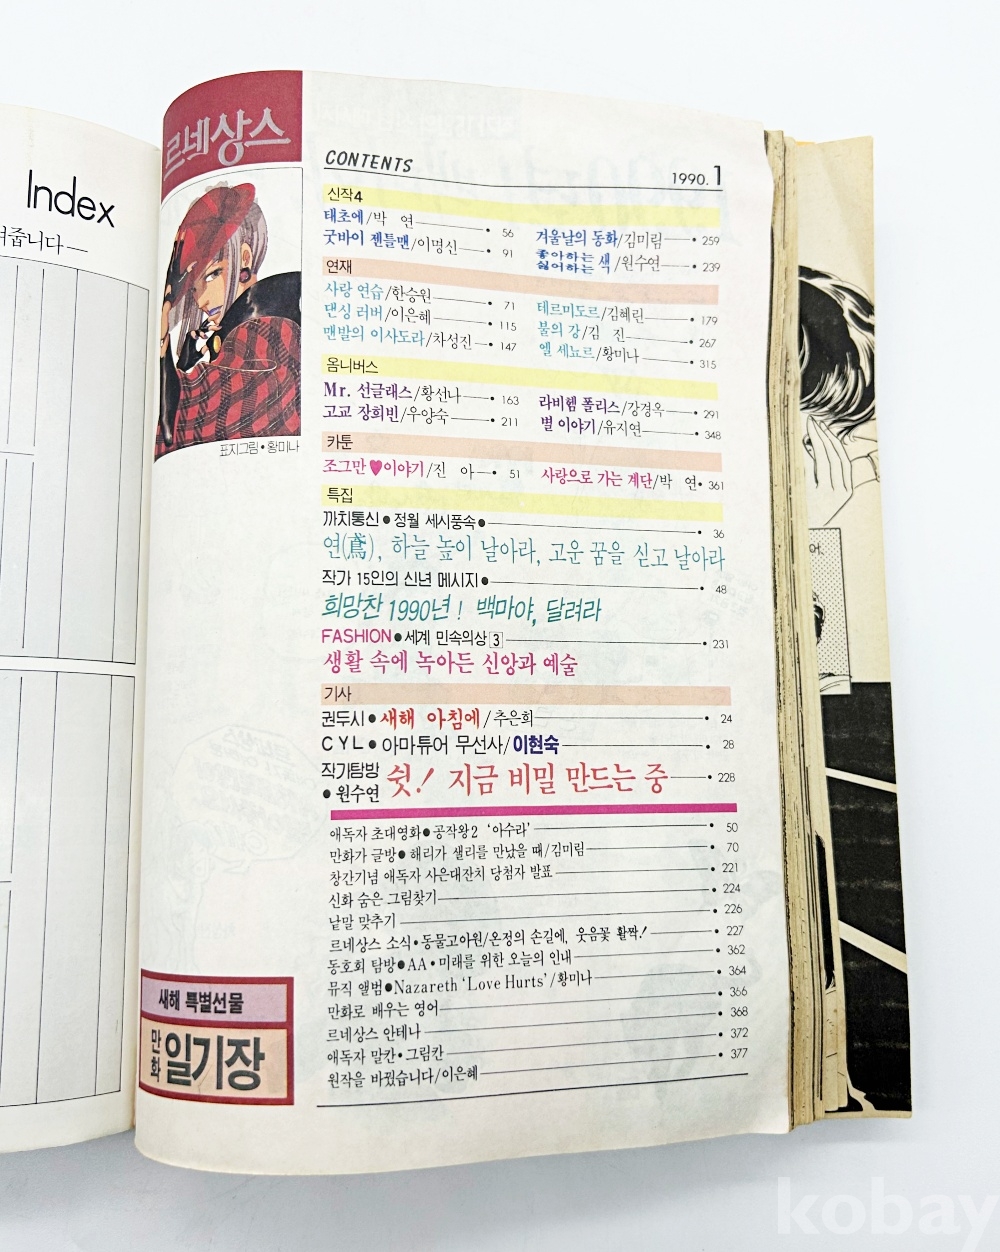 Index
겨줍니다—
르네상스
표지그림•황미나
새해 특별선물
만화 일기장
CONTENTS
1990. 1
신작4
태초에/박 연 • 56
굿바이 젠틀맨/이명신 • 91
겨울날의 동화/김미림 • 259
좋아하는 싫어하는 색/원수연 • 239
연재
사랑 연습/한승원 • 71
댄싱 러버/이은혜 • 115
맨발의 이사도라/차성진 • 147
테르미도르/김혜린 • 179
불의 강/김 진 • 267
엘 세뇨르/황미나 • 315
옴니버스
Mr. 선글래스/황선나 • 163
고교 장희빈/우양숙 • 211
라비헴 폴리스/강경옥 • 291
별 이야기/유지연 • 348
카툰
조그만♥이야기/진 아 • 51
사랑으로 가는 계단/박 연 • 361
특집
까치통신●정월 세시풍속● • 36
연(鳶), 하늘 높이 날아라, 고운 꿈을 싣고 날아라
작가 15인의 신년 메시지● • 48
희망찬 1990년! 백마야, 달려라
FASHION●세계 민속의상 3 • 231
생활 속에 녹아든 신앙과 예술
기사
권두시●새해 아침에/추은희 • 24
CYL●아마튜어 무선사/이현숙 • 28
작가탐방
●원수연 쉿! 지금 비밀 만드는 중 • 228
애독자 초대영화●공작왕2 '아수라' • 50
만화가 글방●해리가 샐리를 만났을 때/김미림 • 70
창간기념 애독자 사은대잔치 당첨자 발표 • 221
신화 숨은 그림찾기 • 224
낱말 맞추기 • 226
르네상스 소식•동물고아원/온정의 손길에, 웃음꽃 활짝! • 227
동호회 탐방●AA•미래를 위한 오늘의 인내 • 362
뮤직 앨범●Nazareth 'Love Hurts'/황미나 • 364
만화로 배우는 영어 • 366
르네상스 안테나 • 368
애독자 말칸•그림칸 • 372
원작을 바꿨습니다/이은혜 • 377
어.
kobay